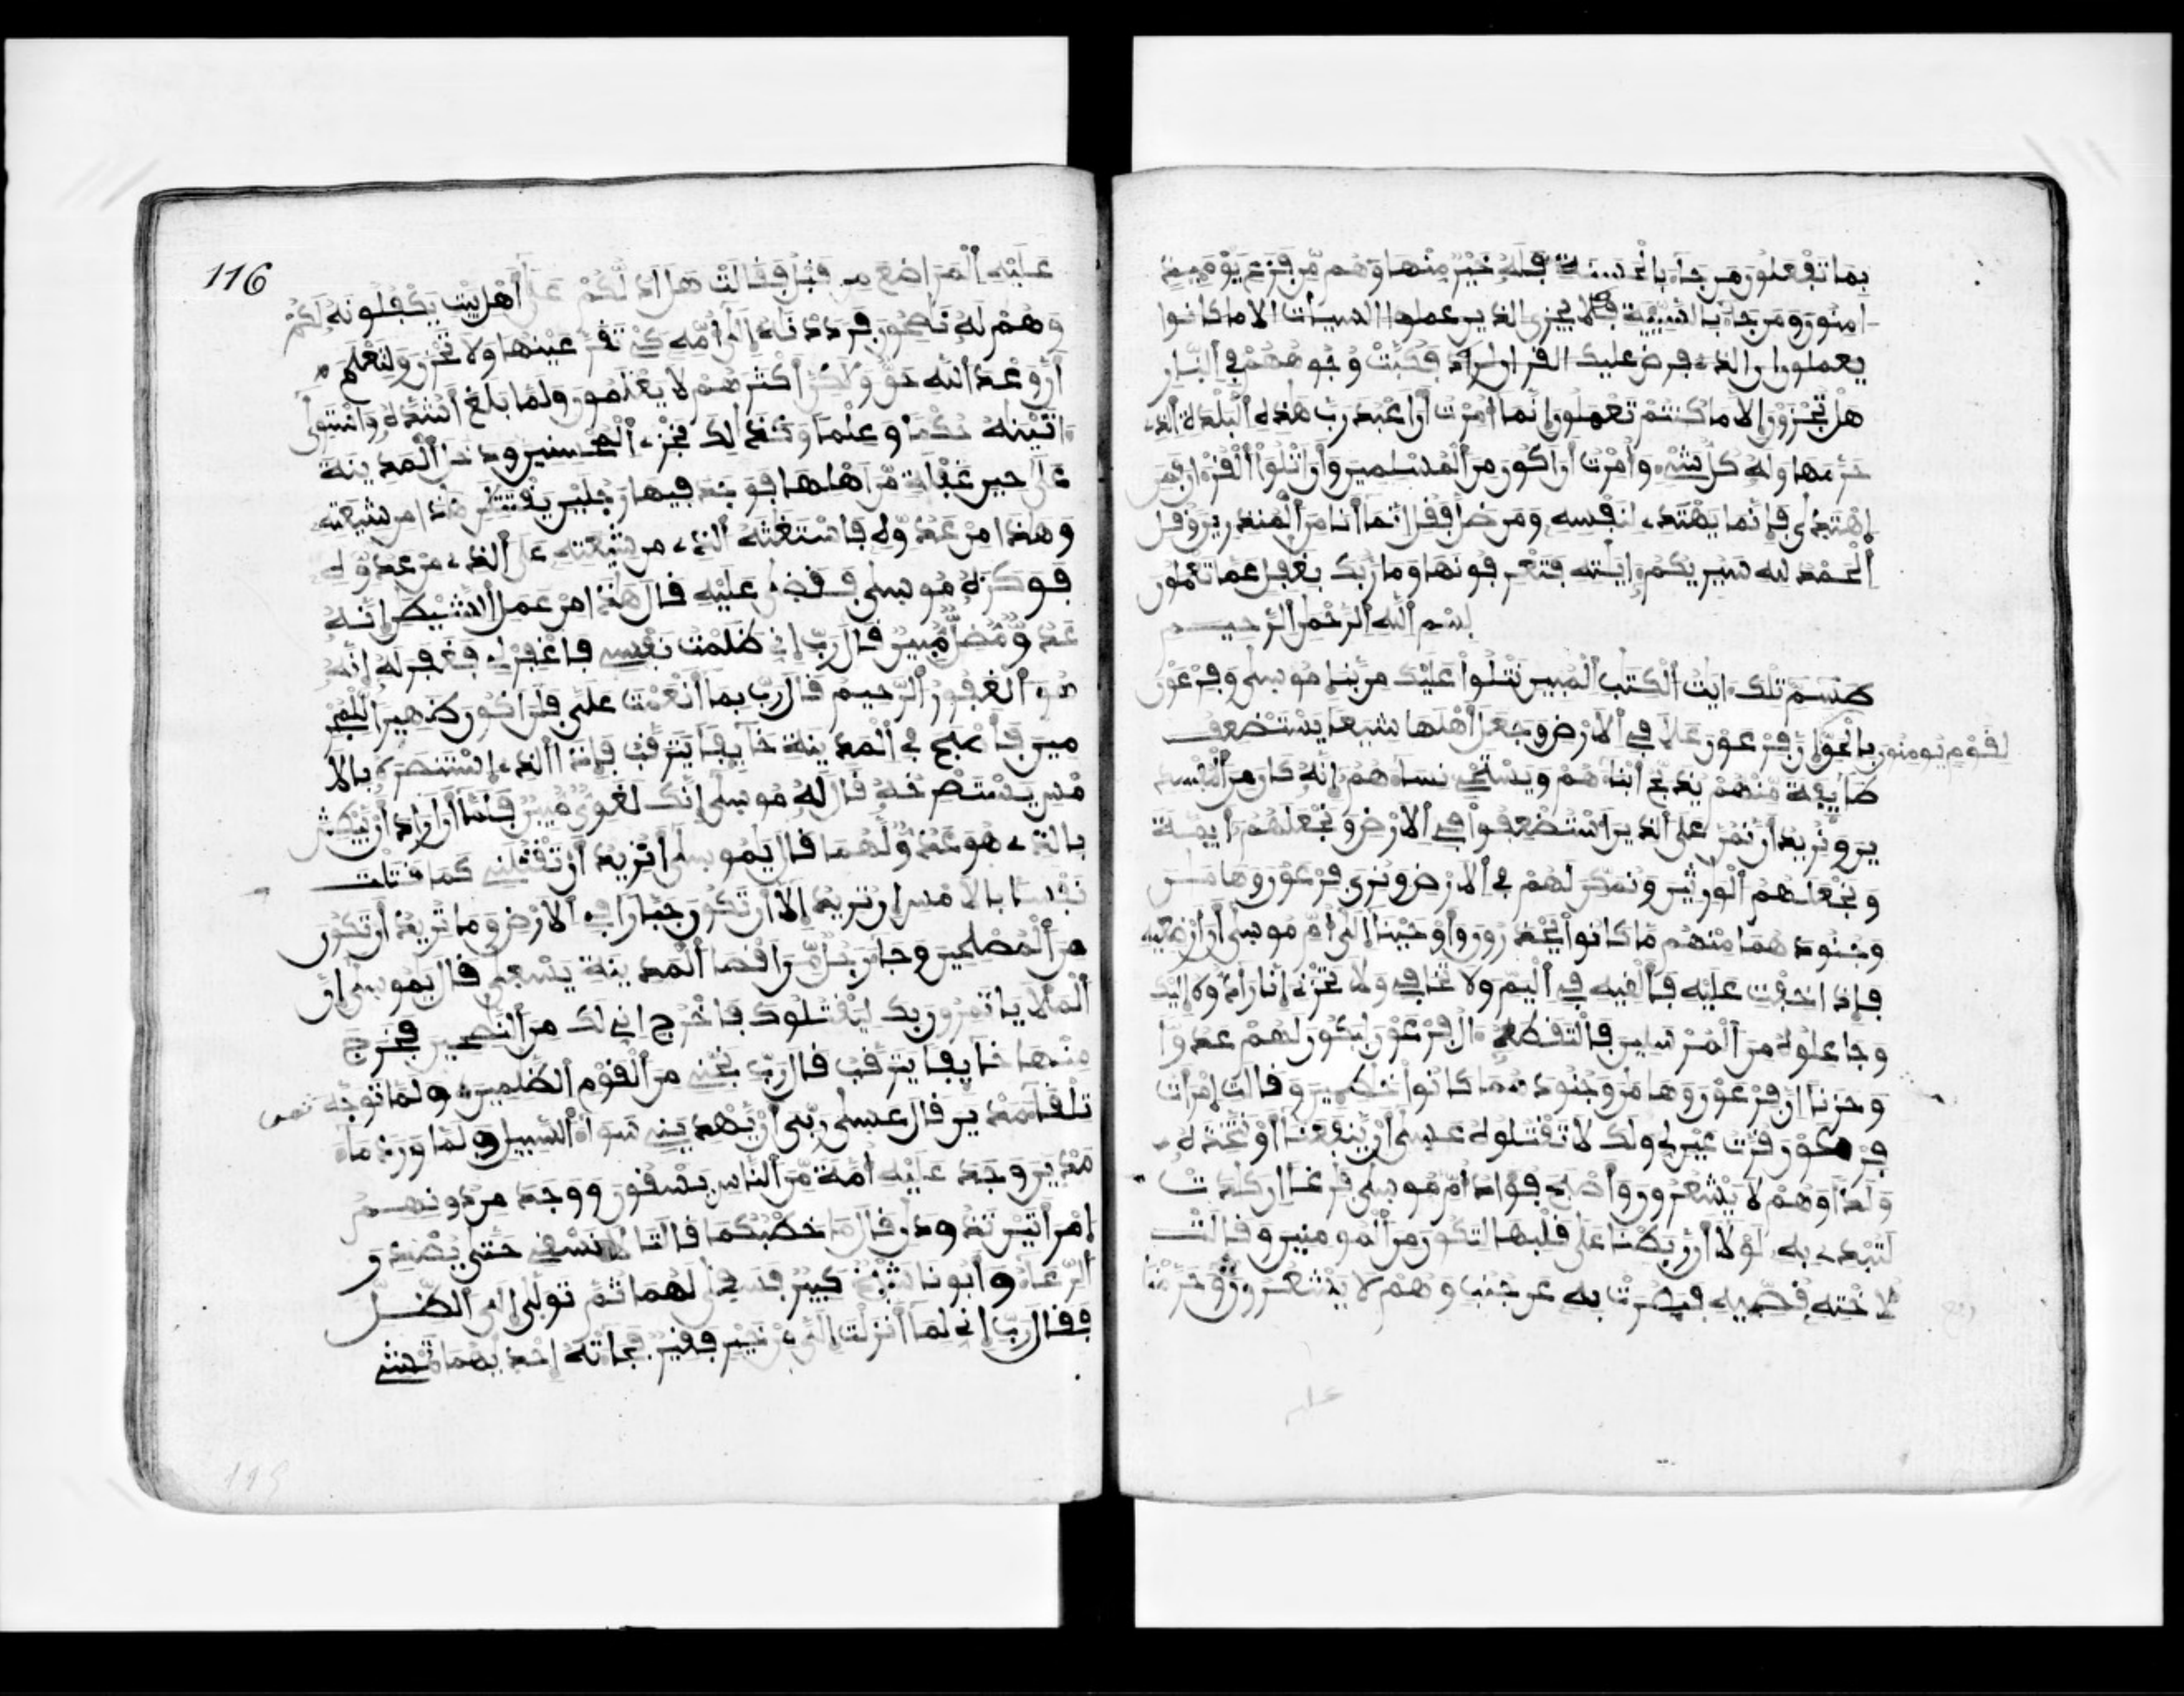 بما تفعلون من جاء بالحسنة فله خير منها وهم من فزع يومئذ
امنون ومن جاء بالسيئة فلا يجزى الذين عملوا السيئات الا ما كانوا
يعملون ان الذى فرض عليك القران لرادك فكبت وجوههم في النار
هل تجزون الا ما كنتم تعملون إنما أمرت أن اعبد رب هذه البلدة الذى
حرمها وله كل شىء وأمرت أن اكون من المسلمين وأن اتلوا القرءان فمن
اهتدى فإنما يهتدى لنفسه ومن ضل فقل انما أنا من المنذرين وقل
الحمد لله سيريكم ءايته فتعرفونها وما ربك بغافل عما تعملون
بسم الله الرحمن الرحيم
طسم تلك ءايت الكتب المبين نتلوا عليك من نبإ موسى وفرعون
بالحق لقوم يومنون إن فرعون علا في الارض وجعل أهلها شيعا يستضعف
طايفة منهم يذبح أبناءهم ويستحي نساءهم إنه كان من المفسد
ين ونريد أن نمن على الذين استضعفوا في الارض ونجعلهم أيمة
ونجعلهم الورثين ونمكن لهم في الارض ونرى فرعون وهامن
وجنودهما منهم ما كانوا يحذرون وأوحينا إلى أم موسى أن ارضعيه
فإذا خفت عليه فألقيه في اليم ولا تخافي ولا تحزني إنا رادوه إليك
وجاعلوه من المرسلين فالتقطه ءال فرعون ليكون لهم عدوا
وحزنا إن فرعون وهامن وجنودهما كانوا خطئين وقالت امرأت
فرعون قرت عين لي ولك لا تقتلوه عسى أن ينفعنا أو نتخذه
ولدا وهم لا يشعرون وأصبح فؤاد أم موسى فرغا ان كادت
لتبدى به لولا أن ربطنا على قلبها لتكون من المومنين وقالت
لاخته قصيه فبصرت به عن جنب وهم لا يشعرون وحرمنا
116
عليه المراضع من قبل فقالت هل ادلكم على أهل بيت يكفلونه لكم
وهم له نصحون فرددنه إلى أمه كي تقر عينها ولا تحزن ولتعلم
أن وعد الله حق ولكن أكثرهم لا يعلمون ولما بلغ أشده واستوى
ءاتينه حكما وعلما وكذلك نجزى المحسنين ودخل المدينة
على حين غفلة من اهلها فوجد فيها رجلين يقتتلن هذا من شيعته
وهذا من عدوه فاستغثه الذى من شيعته على الذى من عدوه
فوكزه موسى فقضى عليه قال هذا من عمل الشيطن إنه
عدو مضل مبين قال رب إني ظلمت نفسي فاغفر لي فغفر له إنه
هو الغفور الرحيم قال رب بما أنعمت علي فلن اكون ظهيرا للمجر
مين فأصبح في المدينة خايفا يترقب فإذا الذى استنصره بالا
مس يستصرخه قال له موسى إنك لغوي مبين فلما أن أراد أن يبطش
بالذى هو عدو لهما قال يموسى أتريد أن تقتلني كما قتلت
نفسا بالامس إن تريد إلا أن تكون جبارا في الارض وما تريد أن تكون
من المصلحين وجاء رجل من اقصا المدينة يسعى قال يموسى إن
الملا ياتمرون بك ليقتلوك فاخرج إني لك من النصحين فخرج
منها خايفا يترقب قال رب نجني من القوم الظلمين ولما توجه
تلقاء مدين قال عسى ربي أن يهديني سواء السبيل ولما ورد ماء
مدين وجد عليه أمة من الناس يسقون ووجد من دونهم
امرأتين تذودان قال ما خطبكما قالتا لا نسقي حتى يصدر
الرعاء وأبونا شيخ كبير فسقى لهما ثم تولى إلى الظل
فقال رب إني لما أنزلت إلي من خير فقير فجاءته إحديهما تمشي